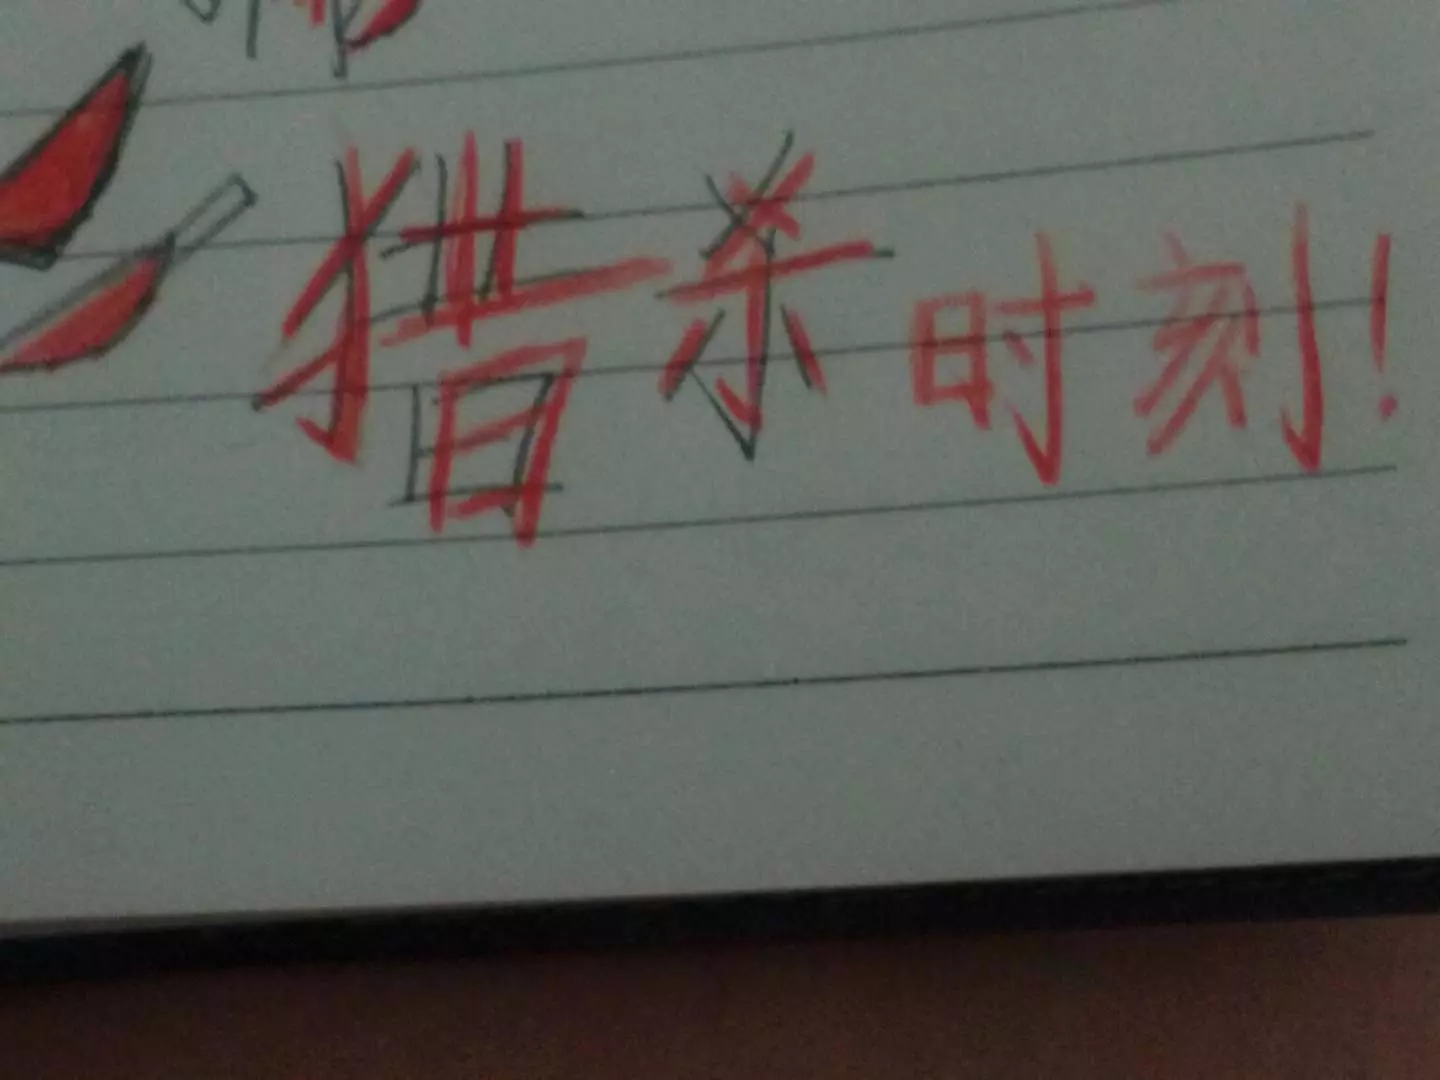 猎杀时刻!